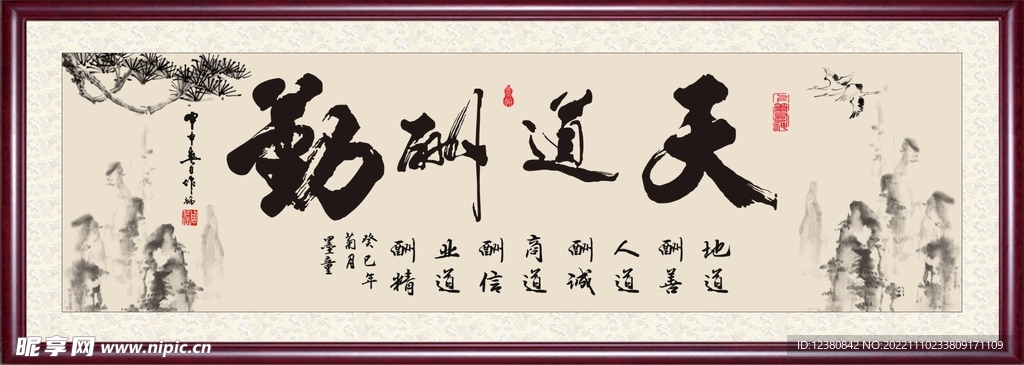 天道酬勤
地道酬善
人道酬诚
商道酬信
业道酬精
癸巳年
菊月
墨童
昵享网 www.nipic.cn
ID:12380842 NO:20221110233809171109